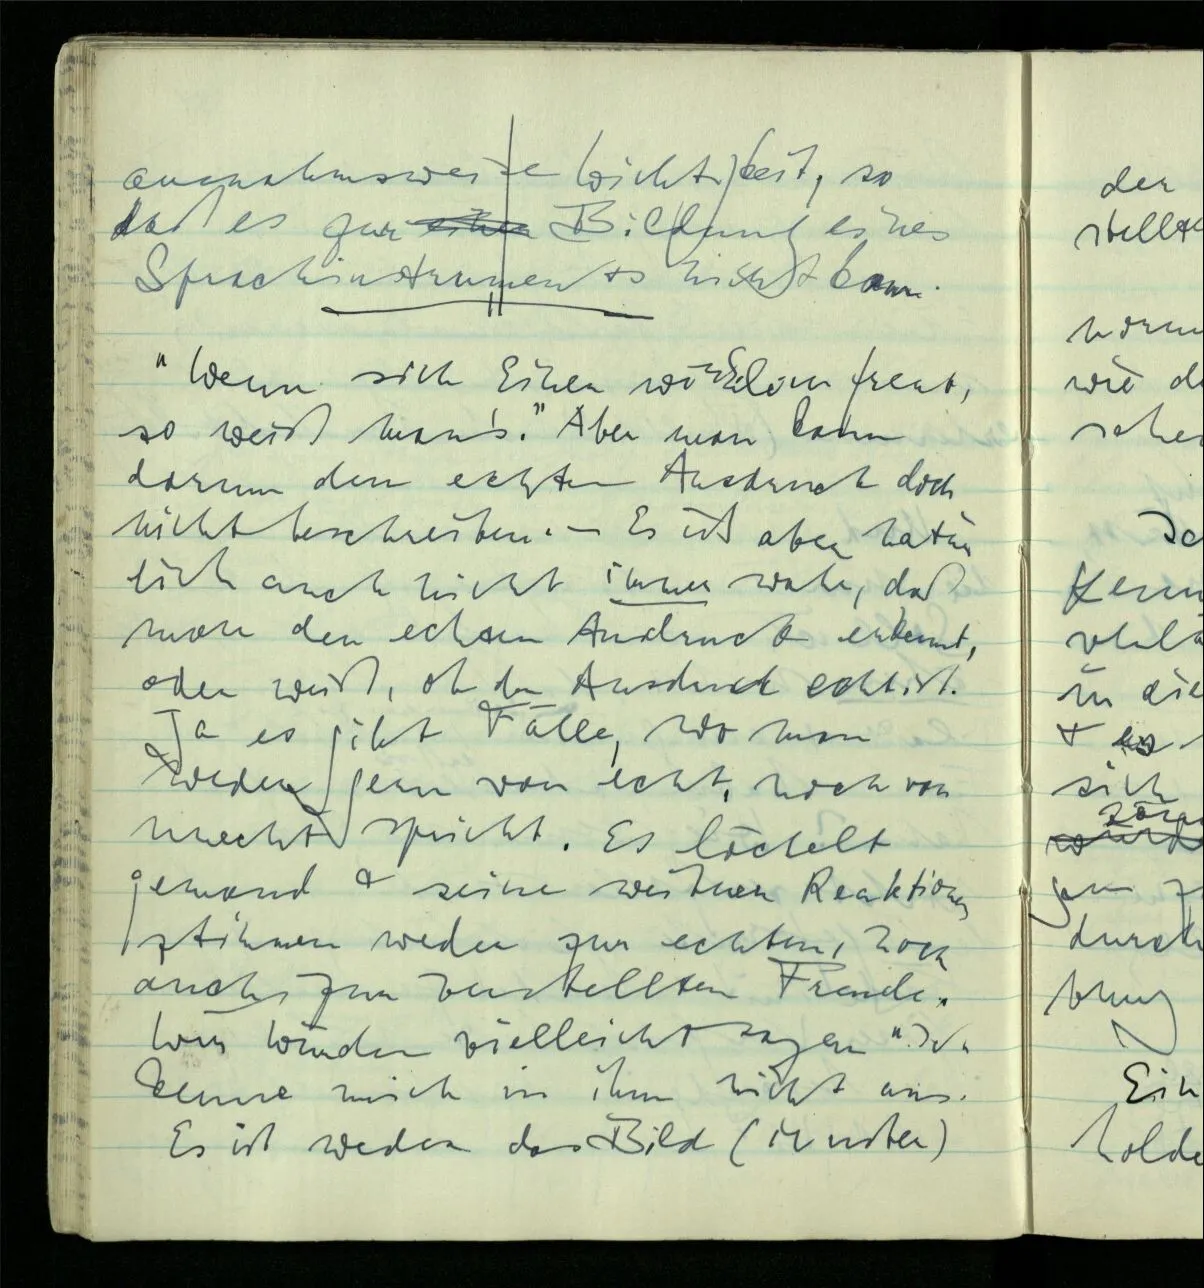 ausnahmsweise Wichtigkeit, so
daß es zur einen Bildung eines
Sprachinstruments nicht kam.
"Wenn sich Einer wirklich freut,
so weiß man's." Aber man kann
darum den echten Ausdruck doch
nicht beschreiben. – Es ist aber natür
lich auch nicht immer wahr, daß
man den echten Ausdruck erkennt,
oder weiß, ob der Ausdruck echt ist.
Ja es gibt Fälle, wo man
weder gern von echt, noch von
unecht spricht. Es lächelt
jemand & seine weiteren Reaktionen
stimmen weder zur echten, noch
auch zur verstellten Freude.
Wir würden vielleicht sagen "Ich
kenne mich in ihm nicht aus.
Es ist weder das Bild (Muster)
der
stellte
wie d
Ein